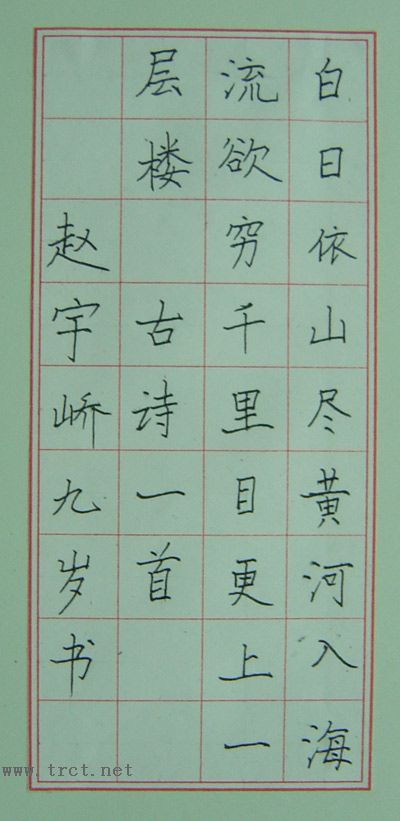 白日依山尽黄河入海
流欲穷千里目更上一
层楼 古诗一首
赵宇峤九岁书
www.trct.net